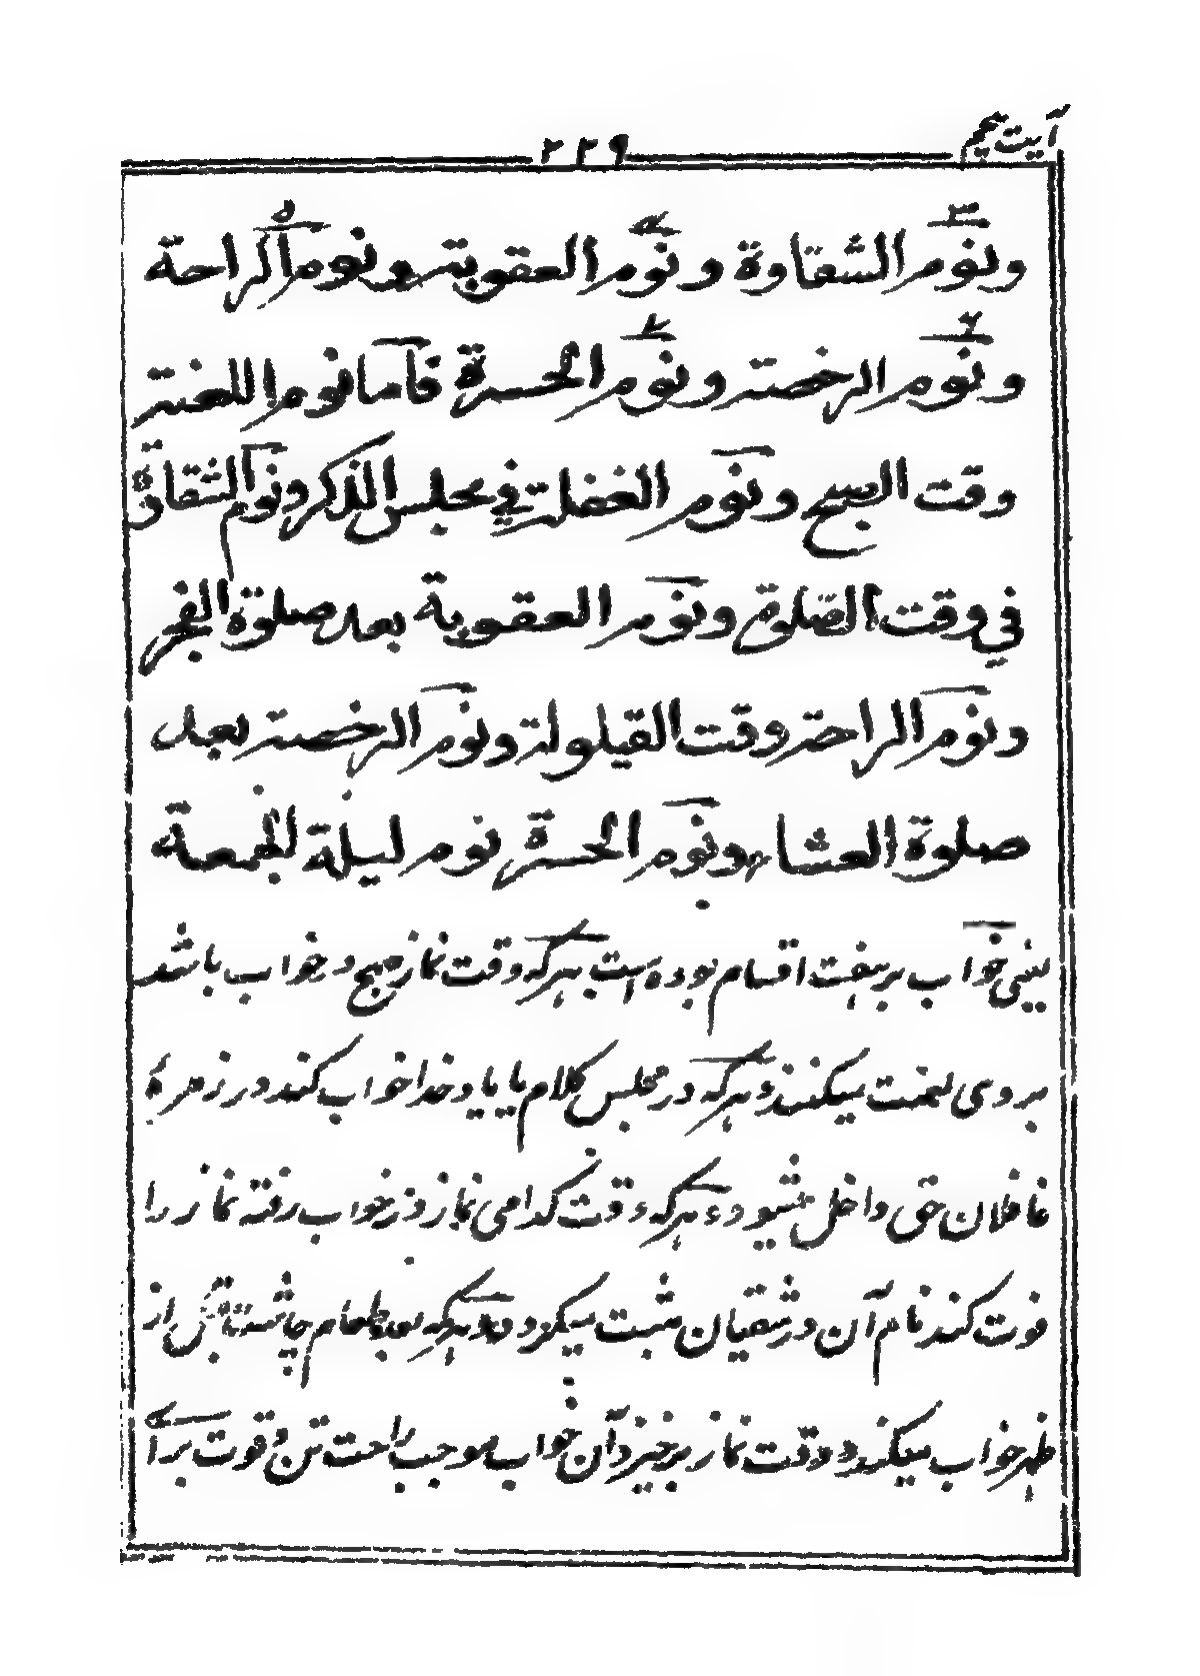 آیت پنجم
۲۲۹
ونوم الشقاوة ونوم العقوبة ونوم الراحة
ونوم الرخصة ونوم الحسرة فاما نوم اللعنة
وقت الصبح ونوم الغفلة فی مجلس الذکر ونوم الشقاوة
فی وقت الصلوة ونوم العقوبة بعد صلوة الفجر
ونوم الراحة وقت القیلولة ونوم الرخصة بعد
صلوة العشاء ونوم الحسرة نوم لیلة الجمعة
یعنی خواب بر هفت اقسام بوده است هر که وقت نماز صبح در خواب باشد
بر وی لعنت میکنند و هر که در مجلس کلام یا یاد خدا خواب کند در زمرهٔ
غافلان حق داخل میشود و هر که وقت کدامی نماز در خواب رفته نماز را
فوت کند نام آن در شقیان ثبت میکنند و هر که بعد طعام چاشت پیش از
ظهر خواب میکند و وقت نماز برخیزد آن خواب موجب راحت تن و قوت برآ